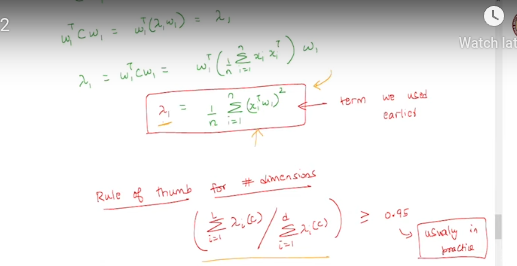 2
Watch lat
w₁ᵀ C w₁ = w₁ᵀ (λ₁ w₁) = λ₁
λ₁ = w₁ᵀ C w₁ = w₁ᵀ ( 1/n Σᵢ₌₁ⁿ xᵢ xᵢᵀ ) w₁
λ₁ = 1/n Σᵢ₌₁ⁿ (xᵢᵀ w₁)² ← term we used
earlier
Rule of thumb for # dimensions
( Σᵢ₌₁ᵏ λᵢ(C) / Σᵢ₌₁ᵈ λᵢ(C) ) ≥ 0.95
usualy in
practice